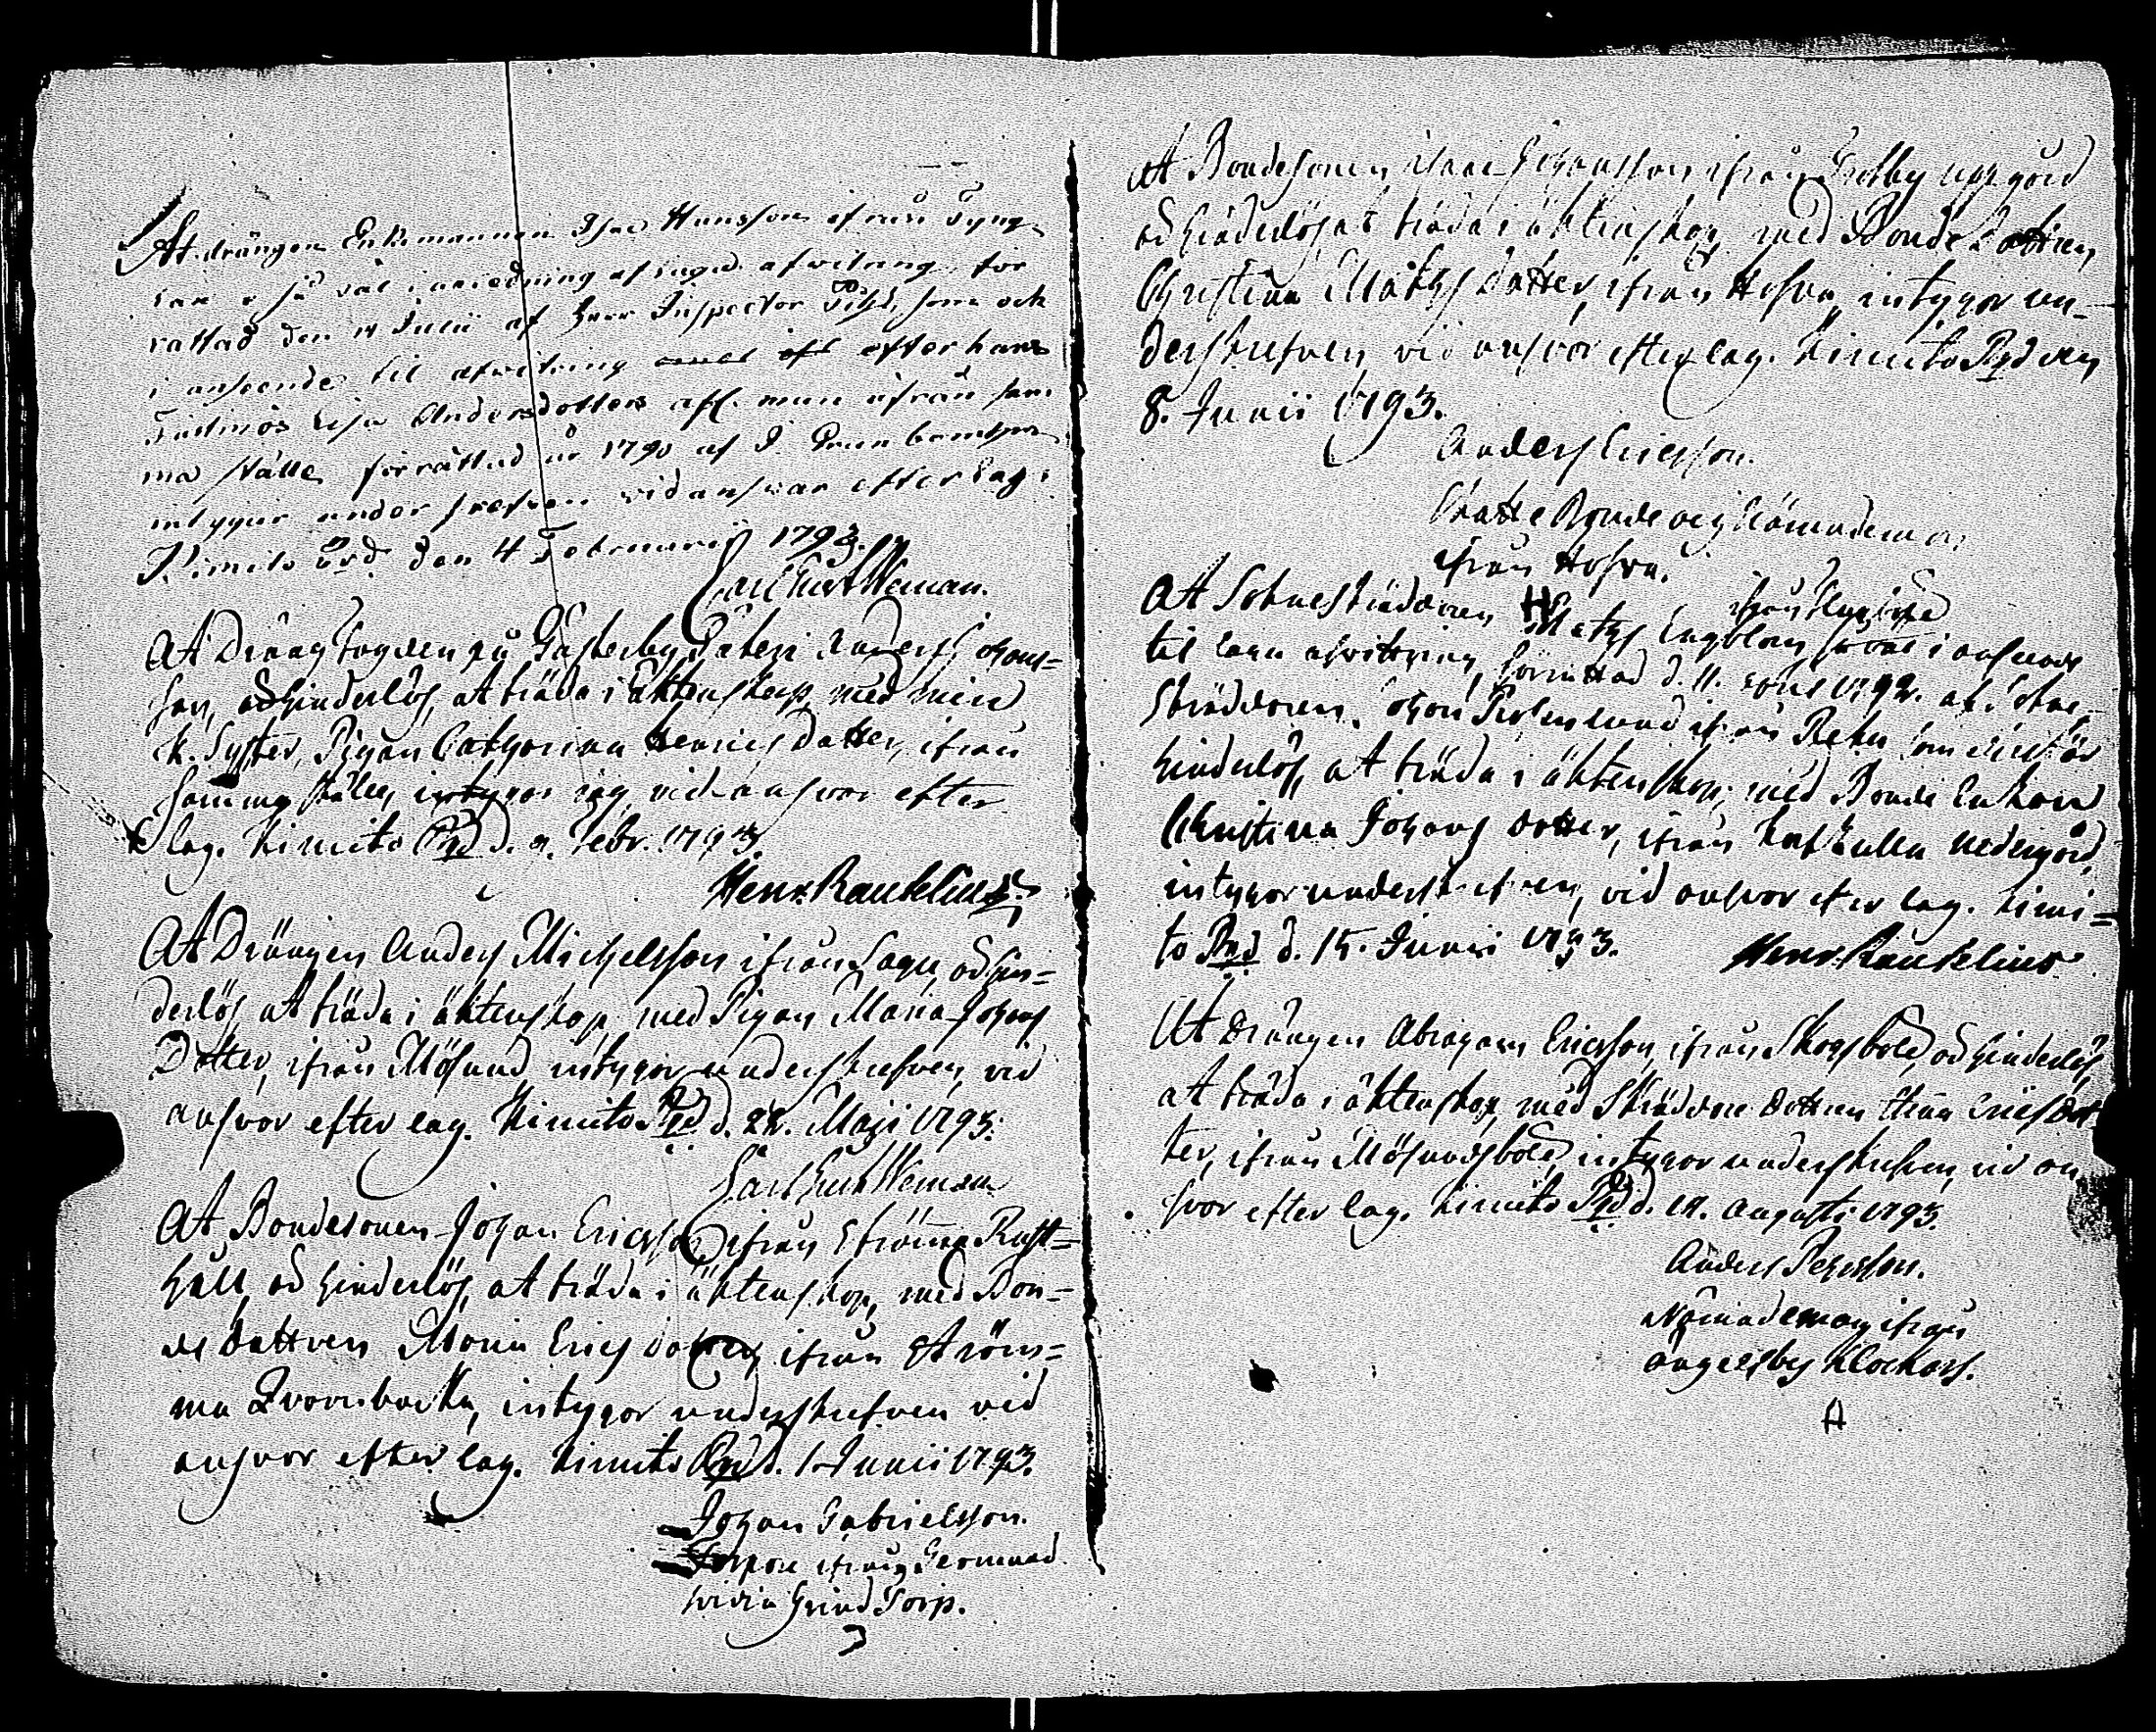 At drängen Enkemannen Isac Hansson ifrån
så väl i anledning af laga afwitring för
rättad den 14 Junii af Herr Inspector som och
i anseende til afwitring efter hans
Fästmös Lisa Andersdotters afl. man ifrån sam
ma ställe förrättad år 1790 af
intygar under skrefven vid answar efter Lag.
Kimito den 4 Februarii 1793.
Carl Eric Weman.
At Dräng fogden på Gästerby Säteri Anders Johans=
son, är hinderlös, at träda i Ächtenskap, med min
K. Syster, Pigan Catharina Henrics Dotter, ifrån
samma ställe, intygar jag vid answar efter
lag. Kimito d. 9. Febr. 1793
Henr. Rancklius
At Drängen Anders Michelsson ifrån Sagu, är hin=
derlös, at träda i äktenskap, med Pigan Maria Johans
Dotter, ifrån Mösund intygar underskrefven, vid
answar efter lag. Kimito d. 22. Maji 1793.
Carl Eric Weman
At Bondesonen Johan Ericsson ifrån Strömma Rust=
håll, är hinderlös, at träda i äktenskap, med Bon=
de dottren Maria Erics dotter, ifrån Ström=
ma Qvarnbacka, intygar underskrefven vid
answar efter lag. Kimito d. 1 Junii 1793.
Johan Gabrielsson.
Torpare ifrån
Torp.
At Bondesonen Isaac Johansson ifrån uppgård
är hinderlös at träda i äktenskap, med Bonde Dottren
Christina Mats dotter, ifrån Hofva, intygar un=
derskrefven, vid answar efter lag. Kimito den
8. Junii 1793.
Anders Ericsson.
Skatte Bonde och Nämndeman
ifrån Hofva.
At Sokneskräddaren Mats Engblom ifrån så väl i anseende
til laga afvittring, förrättad d. 11. 1792. af Sokne
Skräddaren Johan ifrån Reku som är
hinderlös, at träda i äktenskap, med Bonde Enkan
Christina Johans dotter, ifrån nedergård,
intygar underskrefven, vid answar efter lag. Kimi=
to d. 15. Junii 1793.
Henr. Rancklius
At Drängen Abraham Ericsson, ifrån Skogsböle, är hinderlös,
at träda i äktenskap, med Skräddare dottren Erics Dot
ter, ifrån Mösundsböle, intygar underskrefven, vid an
swar efter lag. Kimito d. 17. Augusti 1793.
Anders Pehrsson.
Nämndeman ifrån
Ängelsby Klockars.